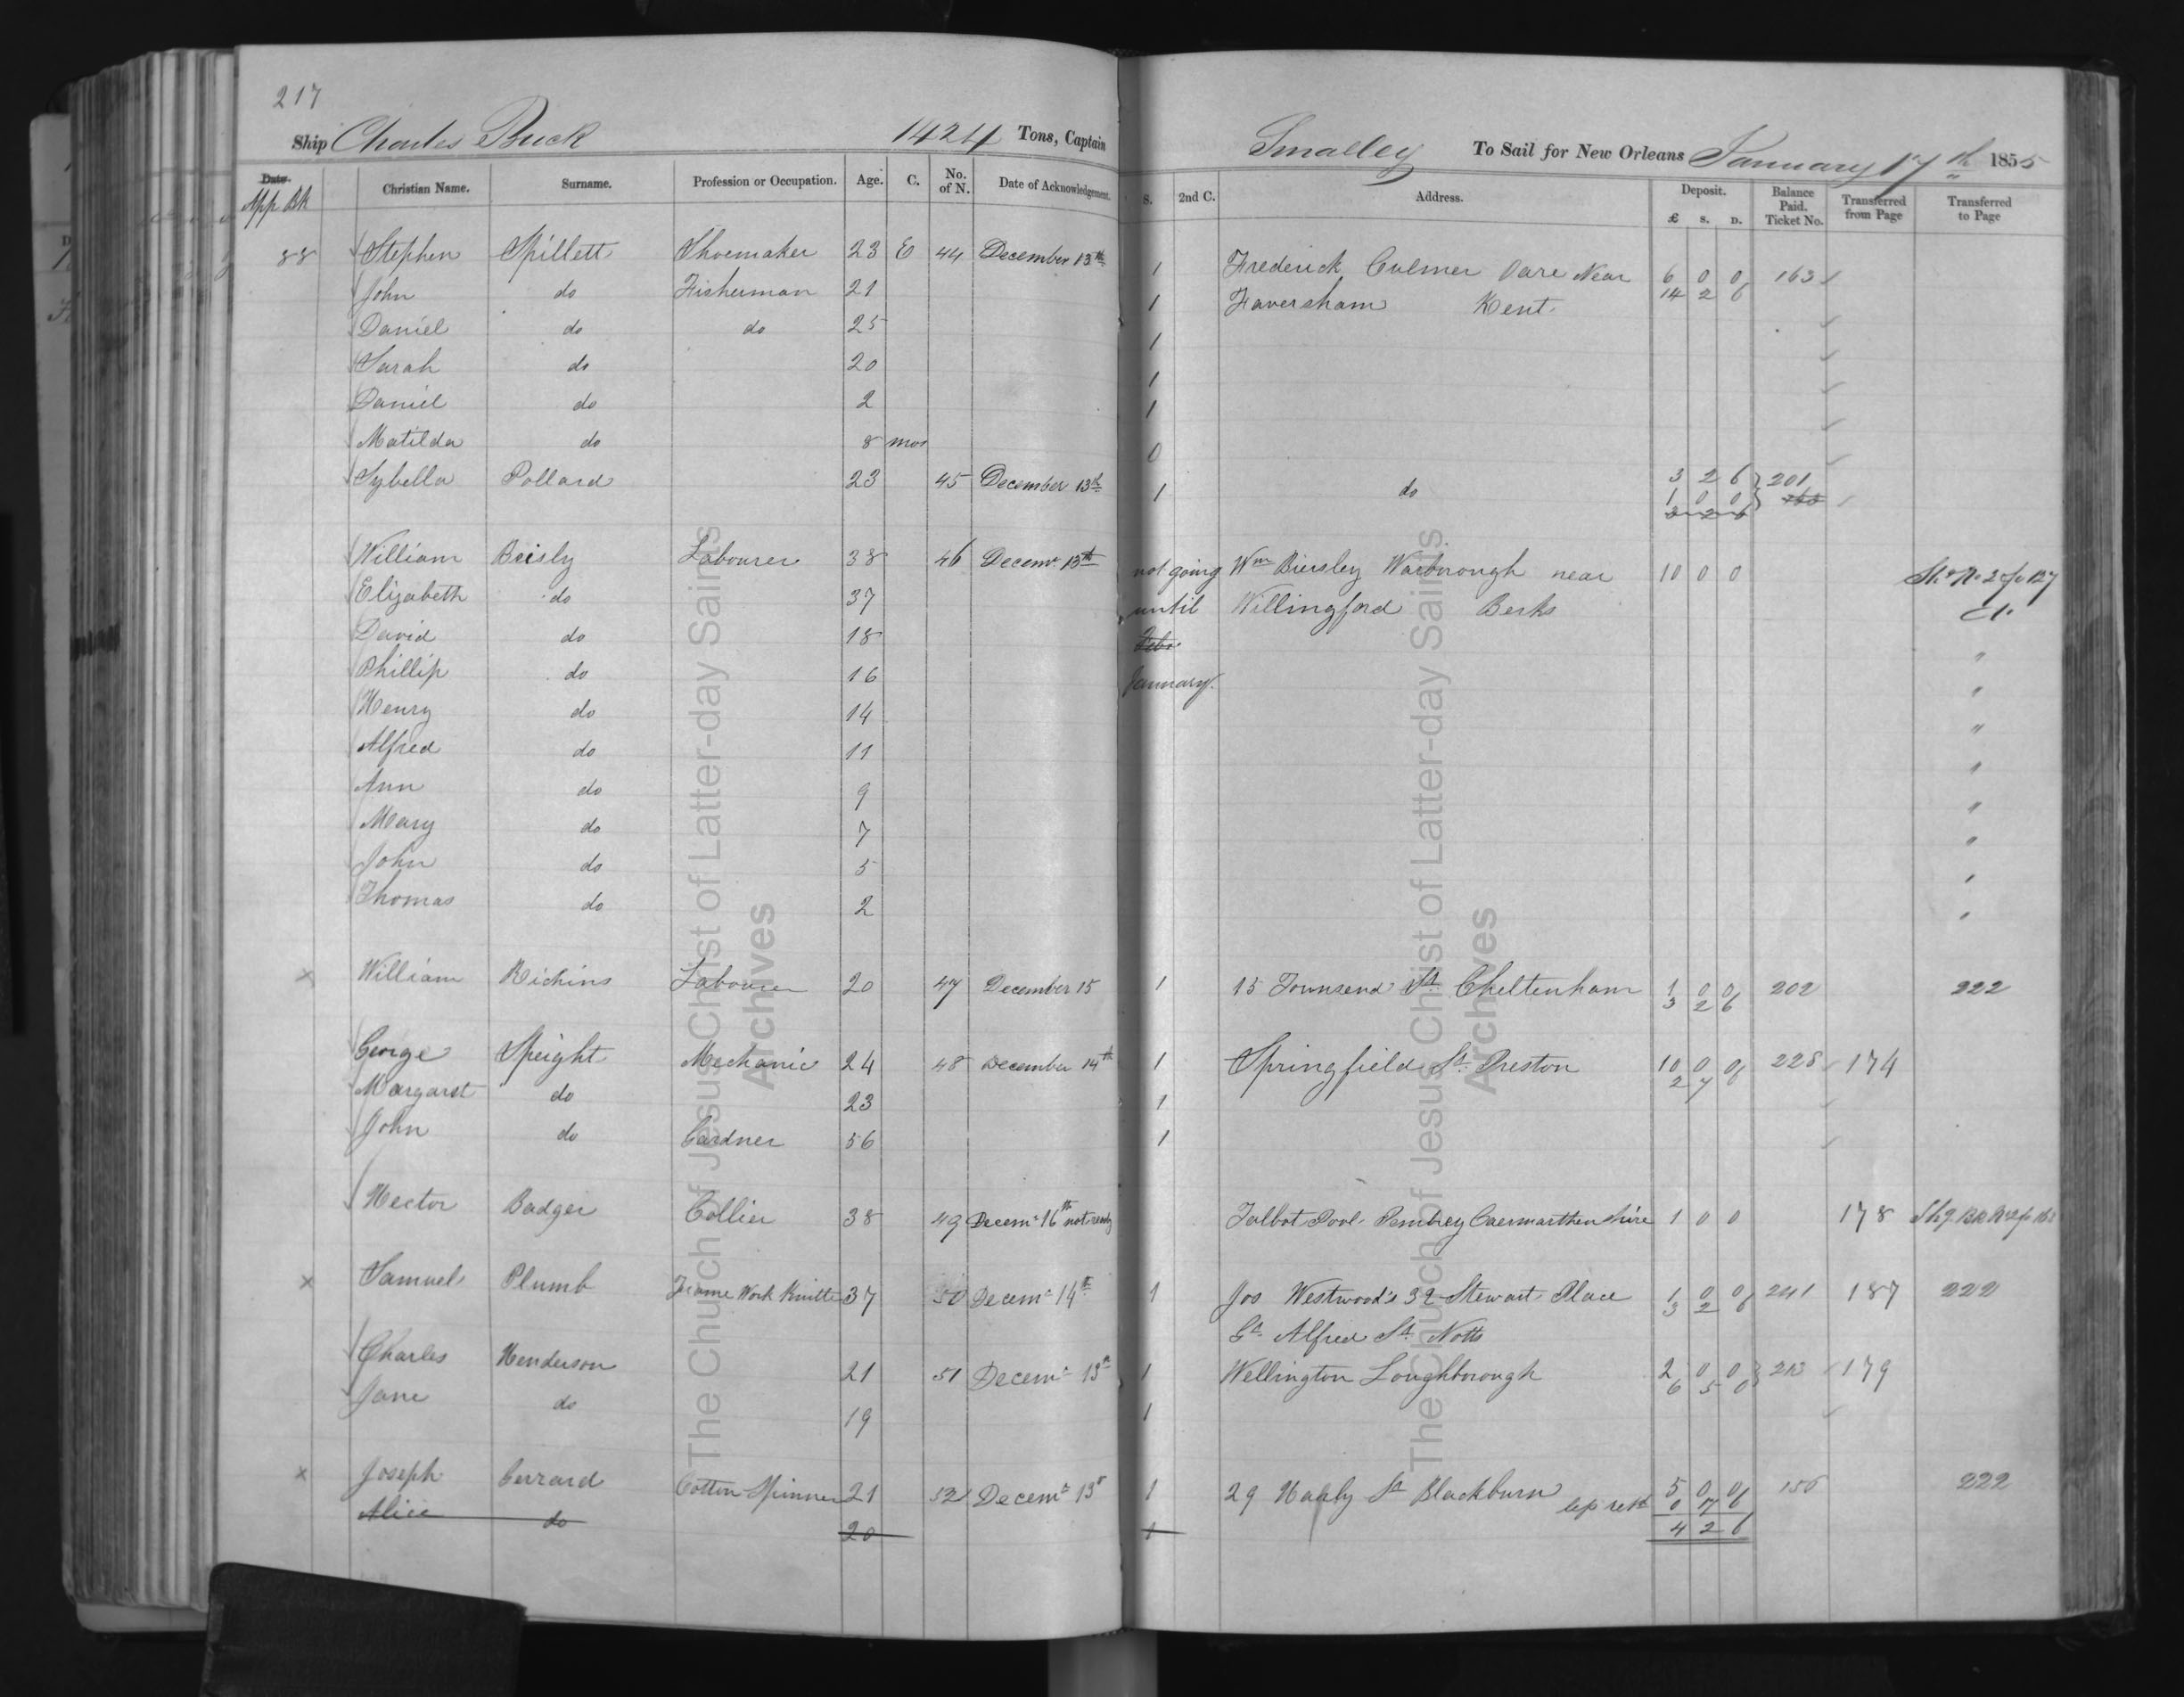 217
Ship Charles Buck 1424 Tons, Captain Smalley To Sail for New Orleans January 17th 1855
Date. Christian Name. Surname. Profession or Occupation. Age. C. No. of N. Date of Acknowledgement. S. 2nd C. Address. Deposit. £ S. D. Balance Paid. Ticket No. Transferred from Page Transferred to Page
App Bk
88 Stephen Spillett Shoemaker 23 E 44 December 13th 1 Frederick Culmer Oare Near 6 0 0 163
John do Fisherman 21 1 Faversham Kent. 14 2 6
Daniel do do 25 1
Sarah do 20 1
Daniel do 2 1
Matilda do 8 mos 0
Sybella Pollard 23 45 December 13th 1 do 3 2 6 201
1 0 0
3 2 6
William Beisly Labourer 38 46 Decemr 13th not going Wm Biersley Warborough near 10 0 0
Elizabeth do 37 until Willingford Berks
David do 18 Feb.
Phillip do 16 January.
Henry do 14 "
Alfred do 11
Ann do 9
Mary do 7
John do 5
Thomas do 2
x William Richins Labourer 20 47 December 15 1 15 Townsend St Cheltenham 1 0 0 202 222
3 2 6
George Speight Mechanic 24 48 December 14th 1 Springfield St. Preston 10 0 0 228 174
Margaret do 23 1 2 7 6
John do Gardner 56 1
Hector Badger Collier 38 49 Decemr 16th not ready Talbot Pool. Pembrey Caermarthenshire 1 0 0 178
x Samuel Plumb Frame Work Knitter 37 50 Decemr 14th 1 Jos Westwood's 32 Stewart Place 1 0 0 241 187 222
3 2 6
Gt. Alfred St. Notts
Charles Henderson 21 51 Decemr 13th 1 Wellington Loughborough 2 0 0 213 179
Jane do 19 1 6 5 0
x Joseph Gerrard Cotton Spinner 21 52 Decemr 13th 1 29 St Blackburn 5 0 0 150 222
Alice do 20 1 0 17 6
4 2 6
The Church of Jesus Christ of Latter-day Saints
Archives
The Church of Jesus Christ of Latter-day Saints
Archives